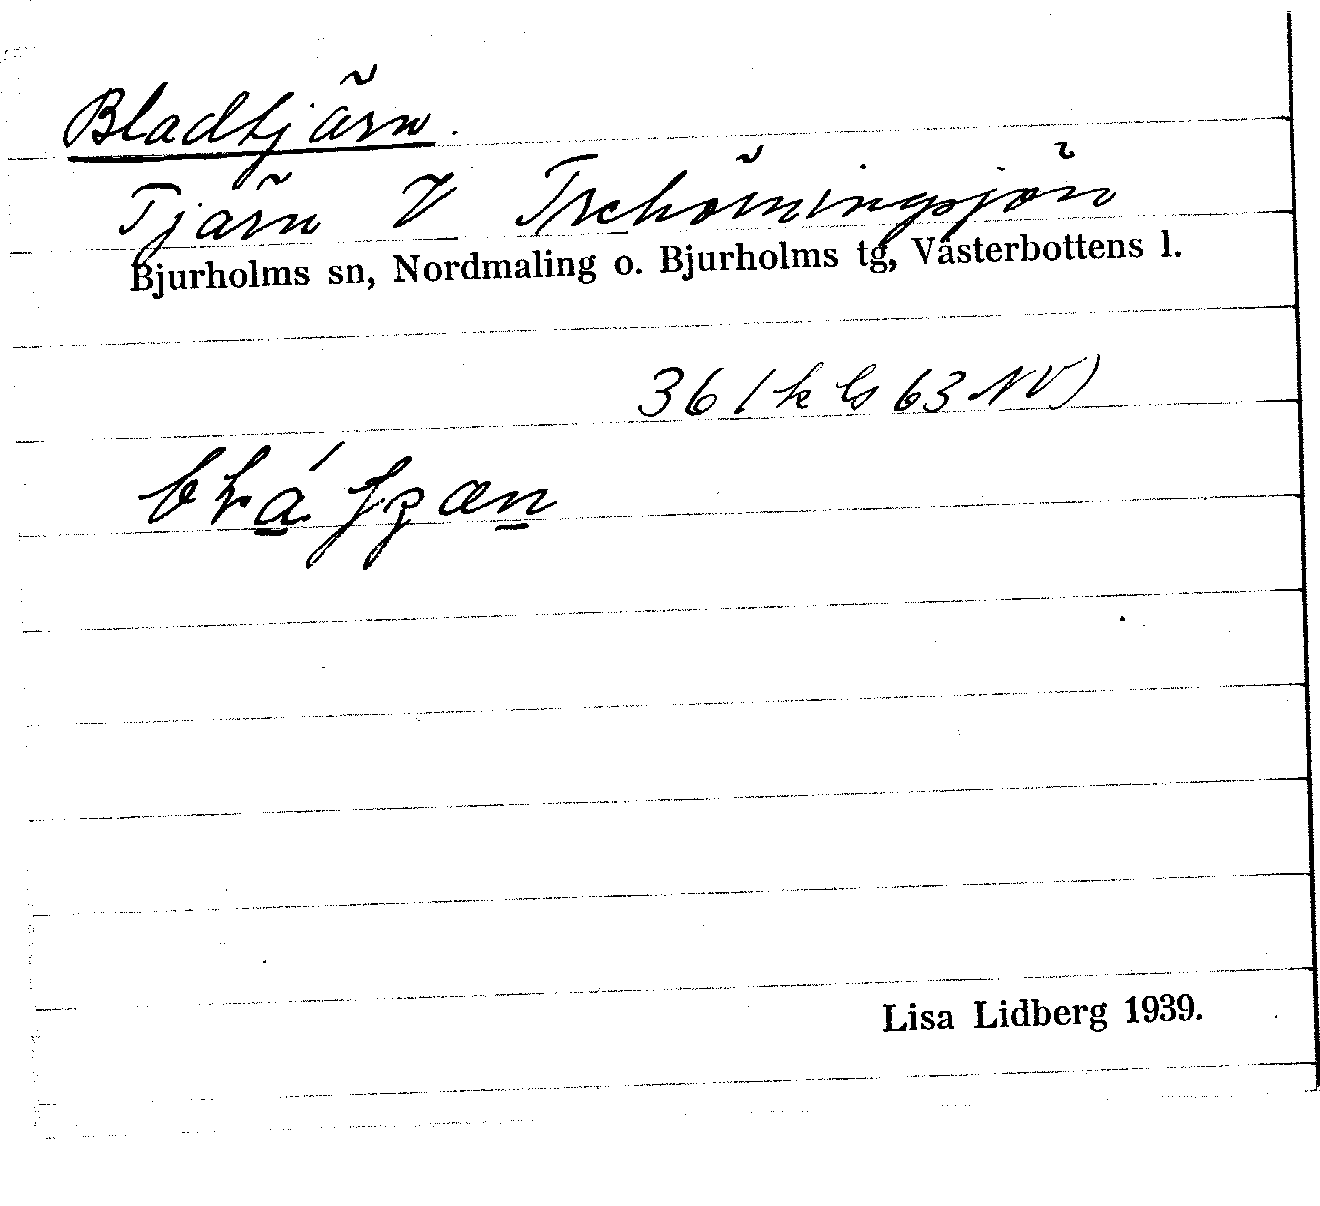 Bladtjärn.
Tjärn V Trehörningsjön
Bjurholms sn, Nordmaling o. Bjurholms tg, Västerbottens l.
36 (k bs 63 NV)
Lisa Lidberg 1939.